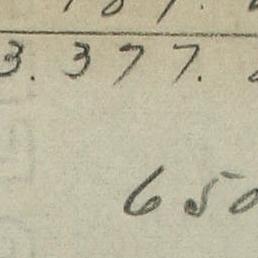 3.377.
650